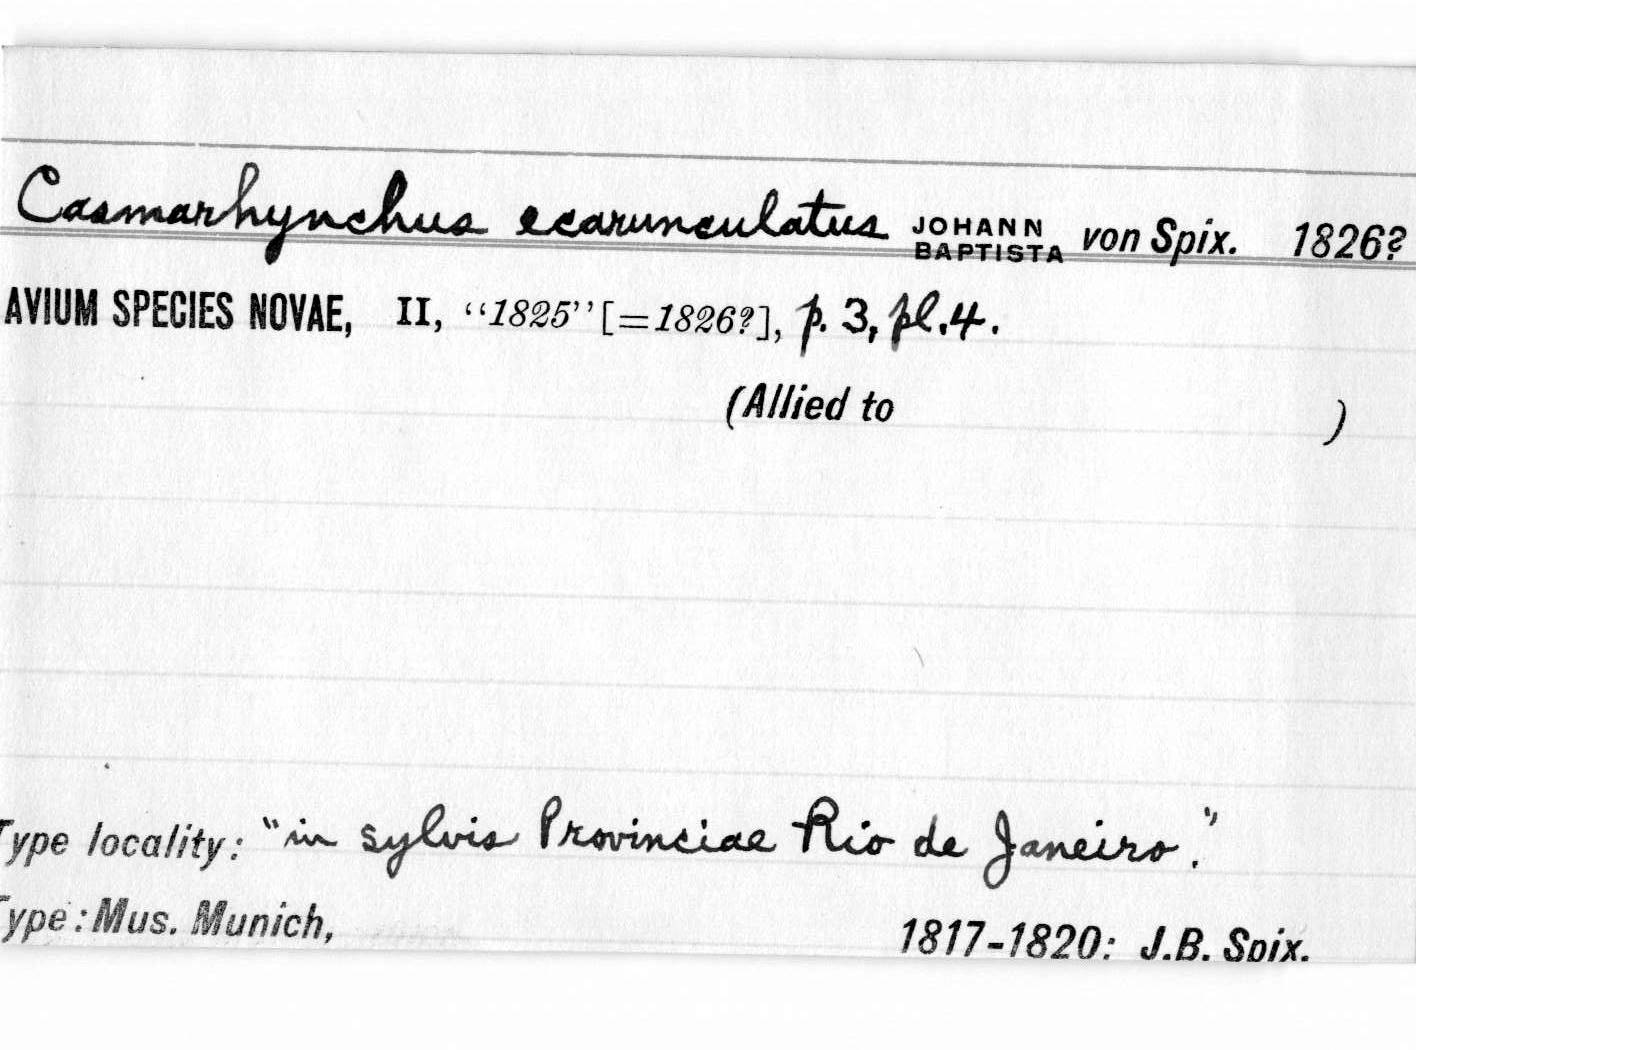 Casmarhynchus ecarunculatus JOHANN BAPTISTA von Spix. 1826?
AVIUM SPECIES NOVAE, II, “1825” [=1826?], p. 3, pl. 4.
(Allied to )
Type locality: "in sylvis Provinciae Rio de Janeiro."
Type: Mus. Munich, 1817-1820: J.B. Spix.